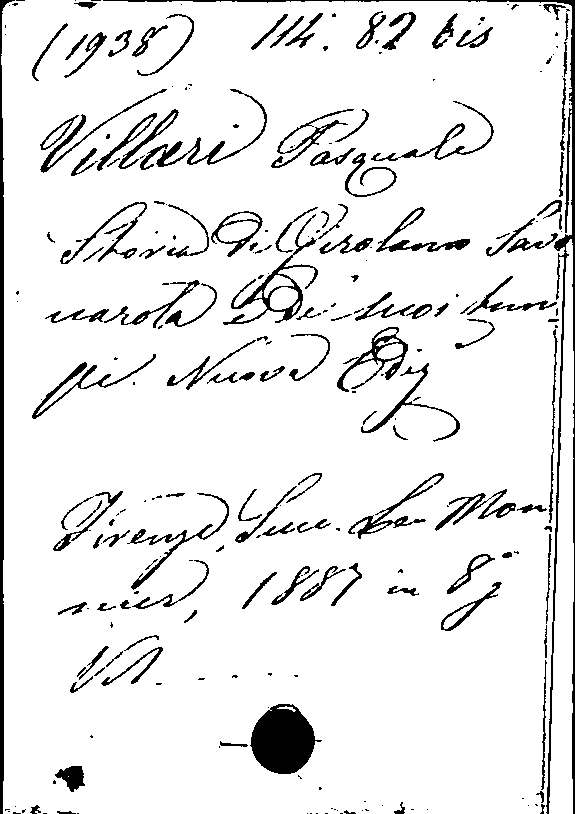 (1938) 114. 82 bis
Villari Pasquale
Storia di Girolamo Savo
narola e de' suoi tem
pi. Nuova Ediz
Firenze, Succ. Le Mon
nier, 1887 in 8°
Vol. . . . . .